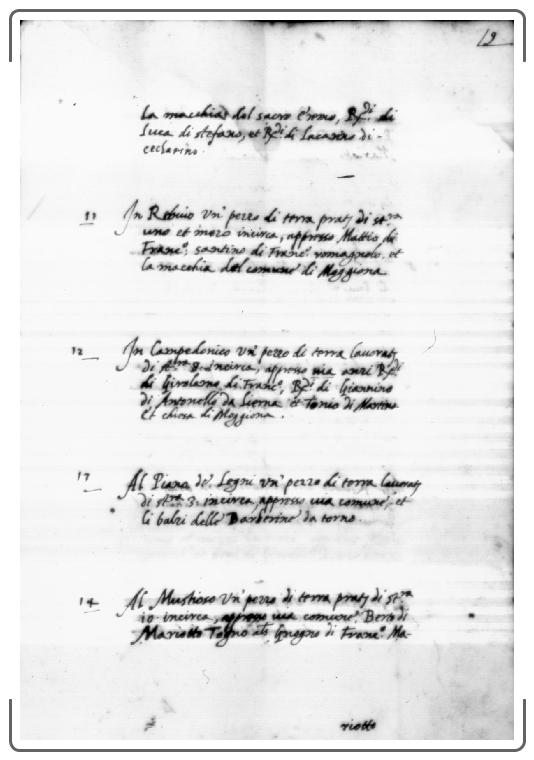 19
La macchia del sacro Eremo, Rdi di
Luca di stefano, et Rdi di Lazarino di
cecharino.
11 In Rebuio un' pezzo di terra prat. di stra
uno et mezo incirca, appresso Mattio di
Franc.o, santino di Franc.o romagnolo, et
la macchia del comune di Moggiona
12 In Campedonico un' pezzo di terra lavorat.
di stra 8. incirca, appresso via anzi Rdi
di Girolamo di Franc.o, Rdi di Giannino
di Antonello da Lierna et Tonio di Martino
et chiesa di Moggiona.
13 Al Piano de' Legni un' pezzo di terra lavorat.
di stra 3. incirca appresso via comune, et
li balzi delle Barberine da torno.
14 Al Mustioso un' pezzo di terra prat. di stra
10 incirca, appresso via comune. Berto di
Mariotto Togno als Gnogno di Franc.o Ma-
riotto